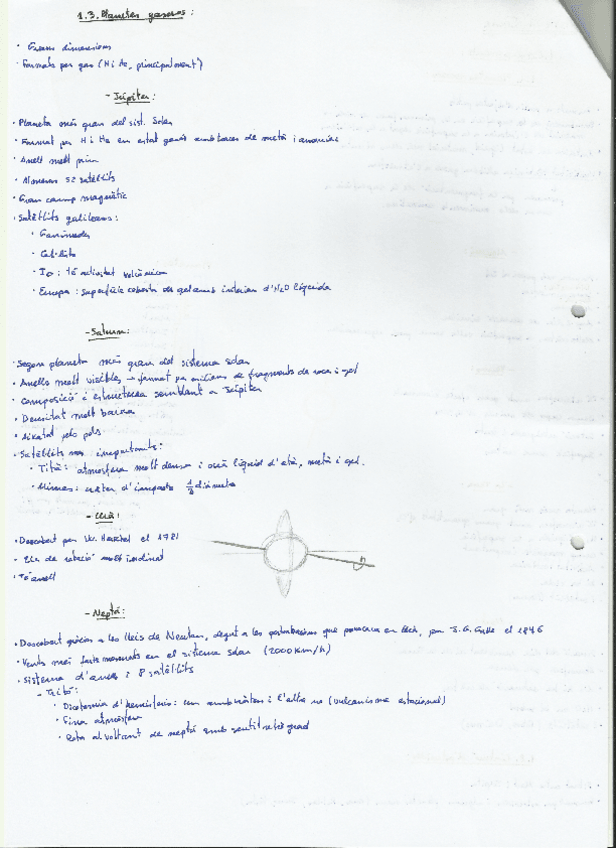 1.3. Planetes gasosos:
· Grans dimensions
· Formats per gas (H i He, principalment)
- Júpiter:
· Planeta més gran del sist. Solar
· Format per H i He en estat gasós amb traces de metà i amoníac
· Anell molt prim
· Almenys 52 satèl·lits
· Gran camp magnètic
· Satèl·lits galileans:
· Ganímedes
· Cal·listo
· Io: té activitat volcànica
· Europa: superfície coberta de gel amb interior d'H2O líquida
- Saturn:
· Segon planeta més gran del sistema solar
· Anells molt visibles → format per milions de fragments de roca i gel
· Composició i estructura semblant a Júpiter
· Densitat molt baixa
· Aixatat pels pols
· Satèl·lits més importants:
· Tità: atmosfera molt densa i oceà líquid d'età, metà i gel.
· Mimas: cràter d'impacte 1/3 diàmetre
- Urà:
· Descobert per W. Herschel el 1781
- Eix de rotació molt inclinat
· Té anell
- Neptú:
· Descobert gràcies a les lleis de Newton, degut a les pertorbacions que provocava en Urà, per J.G. Galle el 1846
· Vents més forts mesurats en el sistema solar (2000 Km/h)
· Sistema d'anells i 8 satèl·lits
- Tritó:
· Dicotomia d'hemisferis: un amb cràters i l'altre no (vulcanisme estacional)
· Fina atmosfera
· Rota al voltant de neptú amb sentit retrògrad